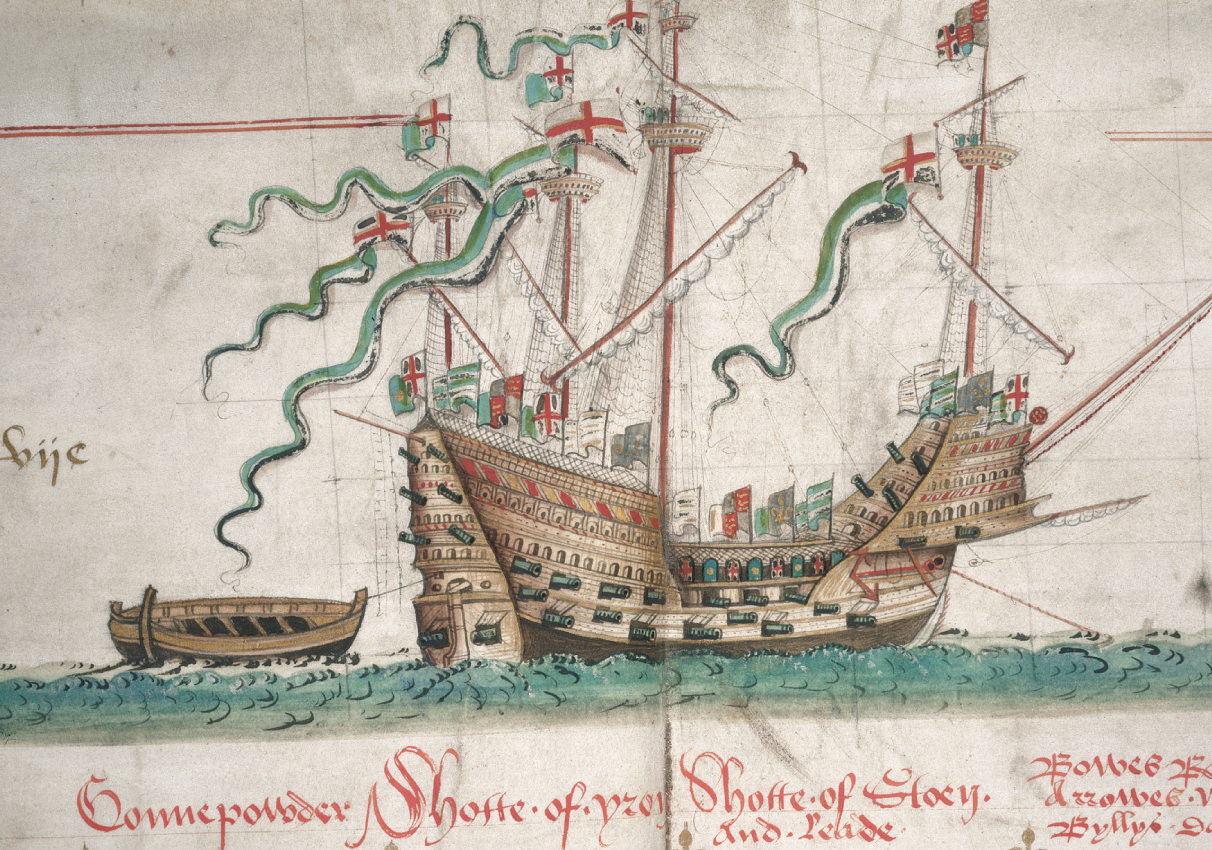 vijc
Gonnepowder
Shotte·of·yron
Shotte·of Stoen·
and·Leade·
Bowes
Arrowes·
Byllys·